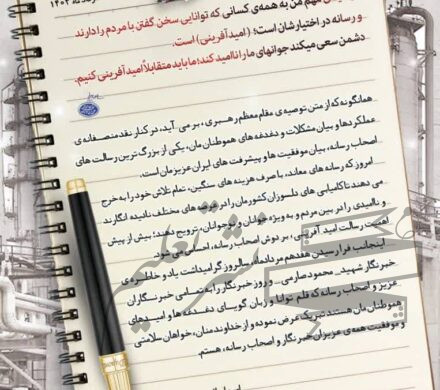 مهم من به همه‌ی کسانی که توانایی سخن گفتن با مردم را دارند
و رسانه در اختیارشان است؛ (امیدآفرینی) است.
دشمن سعی میکند جوانهای ما را ناامید کند؛ ما باید متقابلاً امیدآفرینی کنیم.
همانگونه که از متن توصیه‌ی مقام معظم رهبری، بر می آید، در کنار نقد منصفانه‌ی
عملکردها و بیان مشکلات و دغدغه های هموطنان مان، یکی از بزرگ ترین رسالت های
اصحاب رسانه، بیان موفقیت ها و پیشرفت های ایران عزیزمان است.
امروز که رسانه های معاند، با صرف هزینه های سنگین، تمام تلاش خود را به خرج
می دهند تا کامیابی های دلسوزان کشورمان را در عرصه های مختلف نادیده انگارند
و ناامیدی را در بین مردم و به ویژه جوانان و نوجوانان، ترویج دهند؛ بیش از پیش
اهمیت رسالت امید آفرینی، بر دوش اصحاب رسانه، احساس می شود.
اینجانب فرا رسیدن هفدهم مردادماه، سالروز گرامیداشت یاد و خاطره‌ی
خبرنگار شهید، محمود صارمی، و روز خبرنگار را به تمامی خبرنگاران
عزیز و اصحاب رسانه که قلم توانا و زبان گویای دغدغه ها و امیدهای
هموطنان مان هستند تبریک عرض نموده و از خداوند منان، خواهان سلامتی
و موفقیت همه‌ی عزیزان خبرنگار و اصحاب رسانه، هستم.